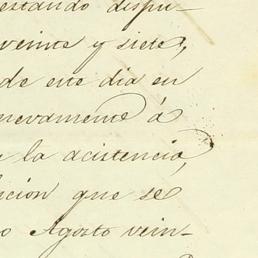 estando dispu-
veinte y siete,
de este dia en
nuevamente á
la acistencia,
cion que se
Agosto vein-